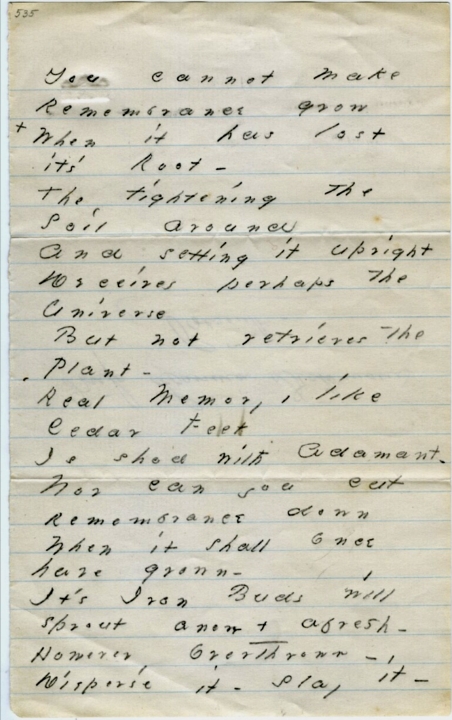 535
You cannot make
Remembrance grow
+ When it has lost
it's Root -
The tightening the
Soil around
And setting it upright
Deceives perhaps the
Universe
But not retrieves the
Plant -
Real Memory, like
Cedar Feet
Is shod with Adamant -
Nor can you cut
Remembrance down
When it shall once
have grown -
It's Iron Buds will
sprout anew + afresh -
However overthrown -
Disperse it - slay it -